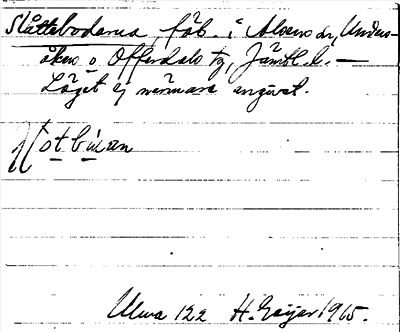 Slåttebodarna, fäb. i Alsens sn, Unders-
åkers o Offerdals tg, Jämtl. l. —
Läget ej närmare angivet.
Hotbúan
Ulma 122 H. Geijer 1915.